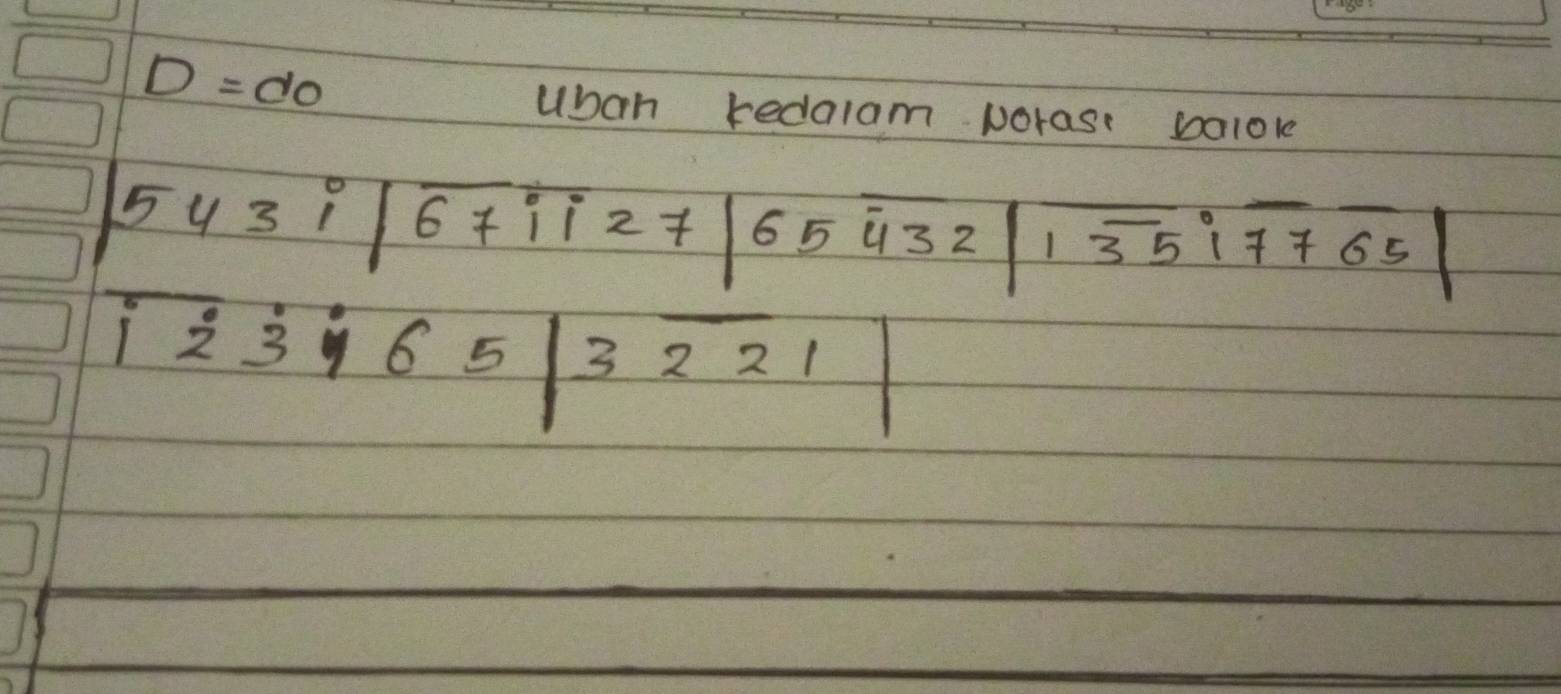 D = do Ubah kedalam Notasi balok
| 5 4 3 i̇ | 6̅ 7̅ i̅ i̅ 2 7 | 6 5 4̅ 3̅ 2 | 1̅ 3̅ 5̅ i̇ 7̅ 7 6̅ 5 |
i̅ 2̅̇ 3̇ 4̇ 6 5 | 3 2̅ 2̅ 1 |